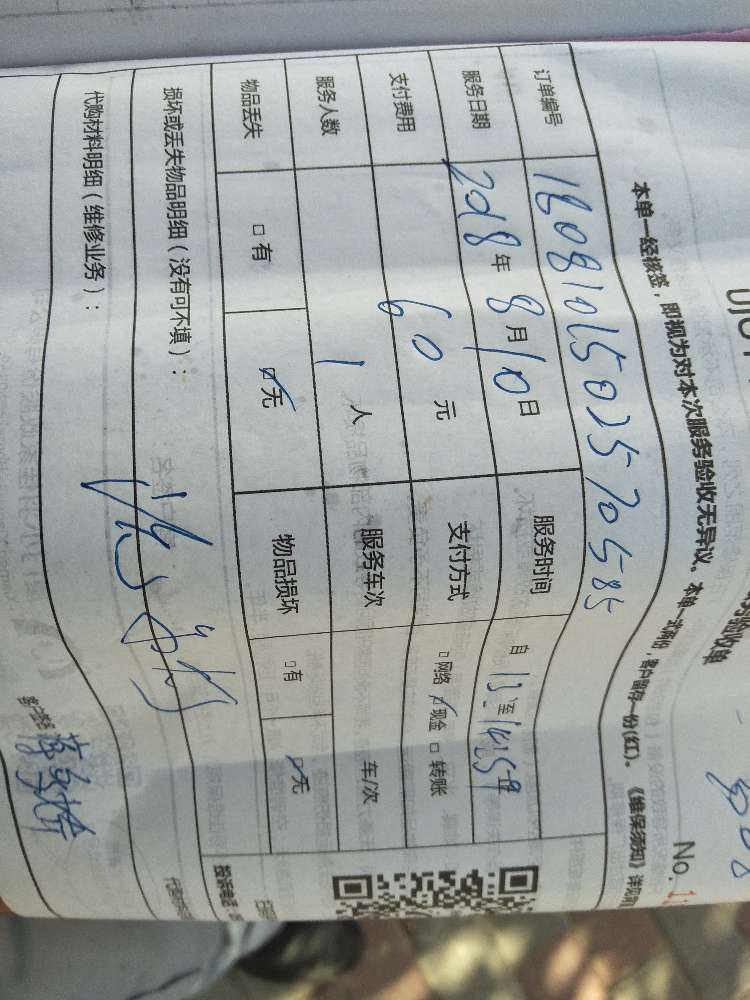 验收单
No. 1
本单一经核签，即视为对本次服务验收无异议。本单一式两份，客户留存一份(红)。《维保须知》详见
订单编号 18081015025570585
服务日期 2018年8月10日 服务时间 自13至14:59
支付费用 60元 支付方式 □网络 ☑现金 □转账
服务人数 1人 服务车次 车/次
物品丢失 □有 ☑无 物品损坏 □有 ☑无
损坏或丢失物品明细（没有可不填）：
代购材料明细（维修业务）：
客户签名
投诉电话：